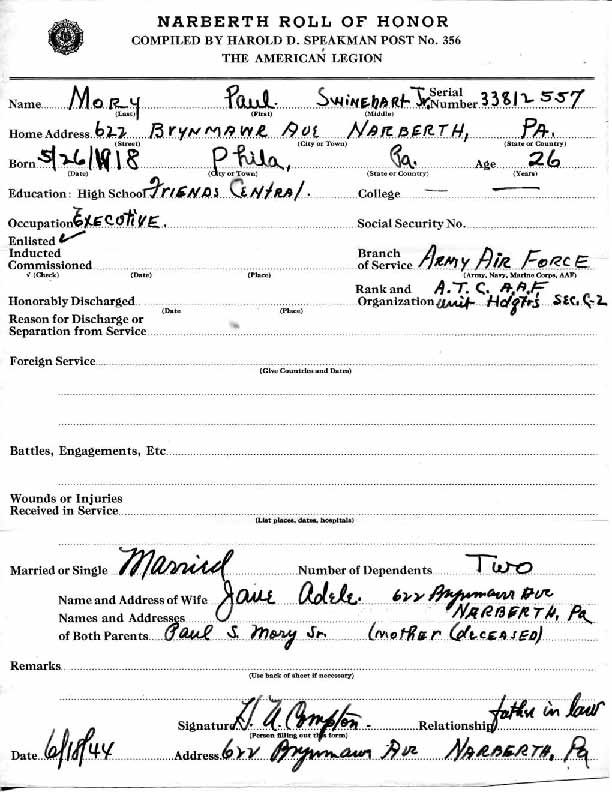 NARBERTH ROLL OF HONOR
COMPILED BY HAROLD D. SPEAKMAN POST No. 356
THE AMERICAN LEGION
Name Mory Paul Swinehart Jr. Serial Number 33812557
(Last) (First) (Middle)
Home Address 622 Brynmawr Ave Narberth, Pa.
(Street) (City or Town) (State or Country)
Born 5/26/1918 Phila, Pa. Age 26
(Date) (City or Town) (State or Country) (Years)
Education: High School Friends Central. College —
Occupation Executive. Social Security No.
Enlisted ✓
Inducted Branch
Commissioned of Service Army Air Force
√ (Check) (Date) (Place) (Army, Navy, Marine Corps, AAF)
Rank and A.T.C. A.A.F
Honorably Discharged Organization unit Hdqtrs Sec. C-2
(Date (Place)
Reason for Discharge or
Separation from Service
Foreign Service
(Give Countries and Dates)
Battles, Engagements, Etc
Wounds or Injuries
Received in Service
(List places, dates, hospitals)
Married or Single Married Number of Dependents Two
Name and Address of Wife Jane Adele. 622 Brynmawr Ave
Narberth, Pa
Names and Addresses
of Both Parents Paul S. Mory Sr. (mother (deceased)
Remarks
(Use back of sheet if necessary)
Signature H. A. Compton - Relationship father in law
(Person filling out this form)
Date 6/18/44 Address 622 Brynmawr Ave Narberth, Pa